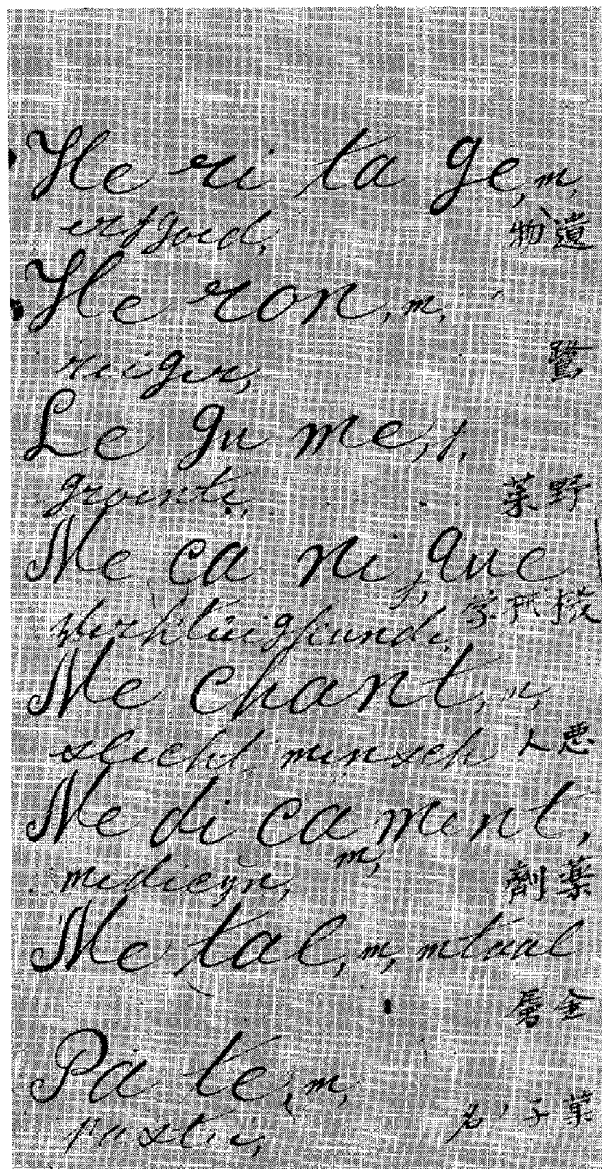 He ri ta ge, m,
erfgoed,
物遺
He ron, m,
reiger,
鷺
Le gu me, f,
groente,
菜野
Me ca ni que
f,
Werktuigkunde,
Me chant, m,
slecht mensch
人悪
Me di ca ment,
m,
medicijn,
剤薬
Me tal, m, mtaal
属金
Pa te, m,
pastei,
名ノ子菓